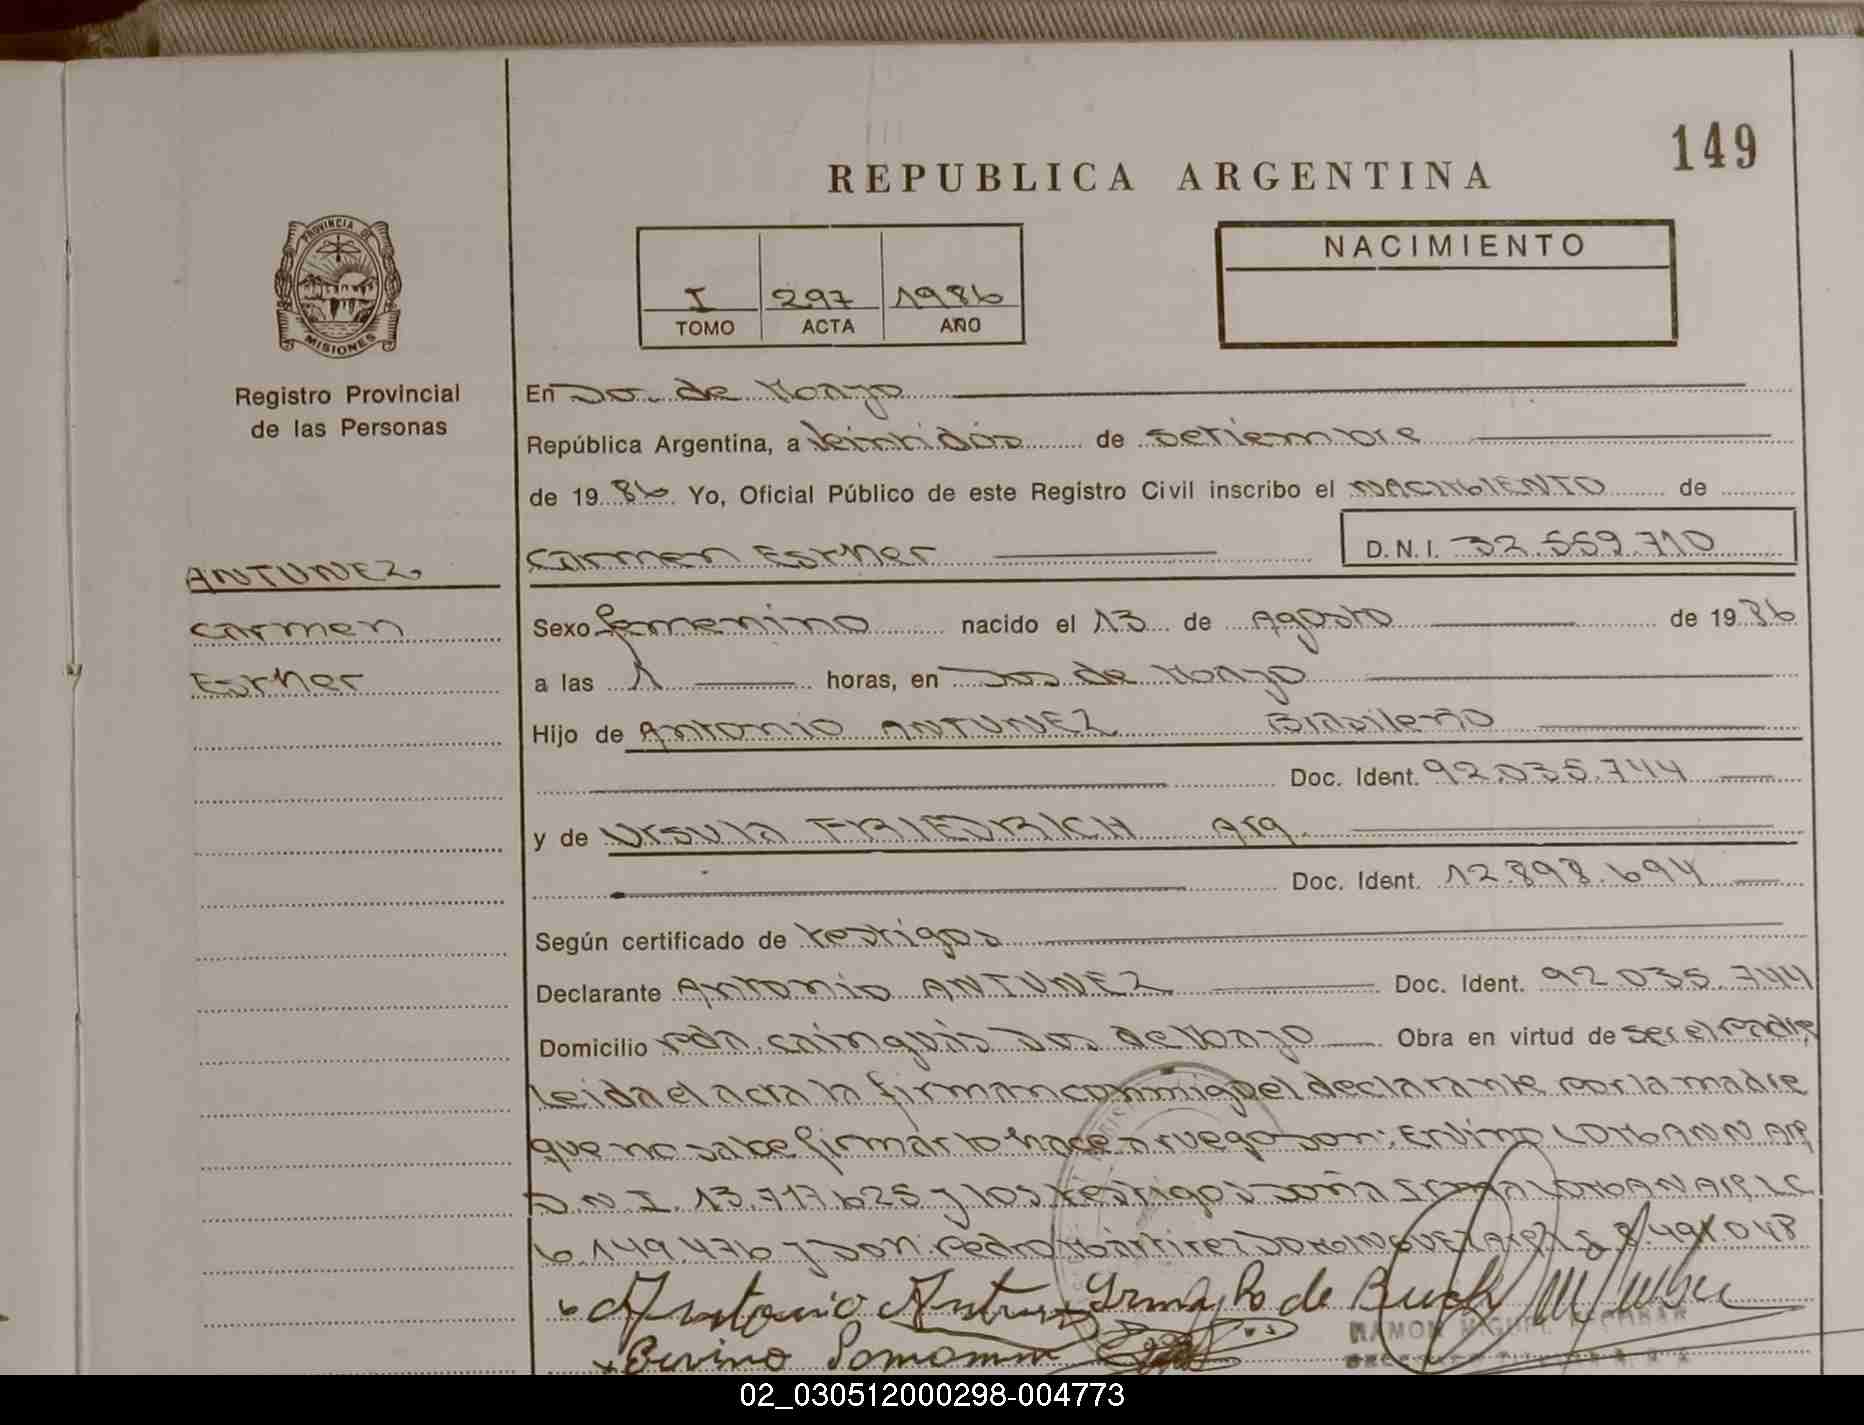 149
REPUBLICA ARGENTINA
PROVINCIA DE
MISIONES
I 297 1986
TOMO ACTA AÑO
NACIMIENTO
Registro Provincial
de las Personas
En Dos de Mayo
República Argentina, a Veintidós de setiembre
de 1986 Yo, Oficial Público de este Registro Civil inscribo el NACIMIENTO de
Carmen Esther D.N.I. 32.559.710
ANTUNEZ
Carmen
Esther
Sexo femenino nacido el 13 de Agosto de 1986
a las 1 horas, en Dos de Mayo
Hijo de Antonio ANTUNEZ Brasileño
Doc. Ident. 92.035.744
y de Ursula FRIEDRICH Arg.
Doc. Ident. 12.898.694
Según certificado de testigos
Declarante Antonio ANTUNEZ Doc. Ident. 92.035.744
Domicilio Pda. Cainguás Dos de Mayo Obra en virtud de ser el Padre
Leida el acta la firman conmigo el declarante por la madre
que no sabe firmar lo hace a ruego don: Ervino
D.N.I. 13.717.625 y los testigos doña LC
6.149.476 y Don Pedro
Antonio
RAMON MIGUEL
02_030512000298-004773